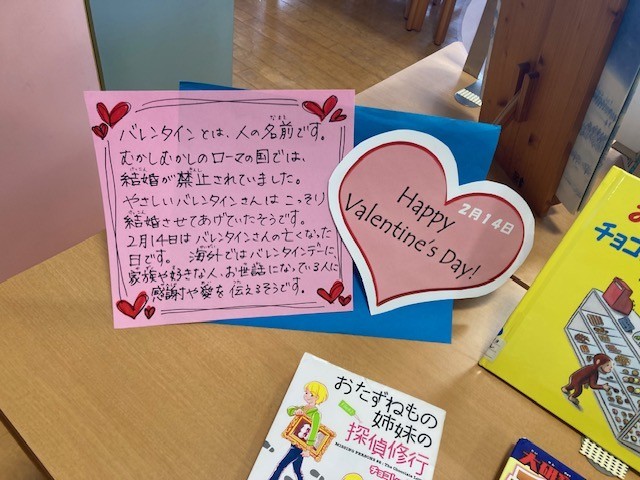 バレンタインとは、人の名前です。
むかしむかしのローマの国では、
結婚が禁止されていました。
やさしいバレンタインさんは こっそり
結婚させてあげていたそうです。
2月14日は バレンタインさんの亡くなった
日です。 海外ではバレンタインデーに、
家族や好きな人、お世話になっている人に
感謝や愛を 伝えるそうです。
2月14日
Happy
Valentine's Day!
チョコ
おたずねもの
姉妹の
探偵修行